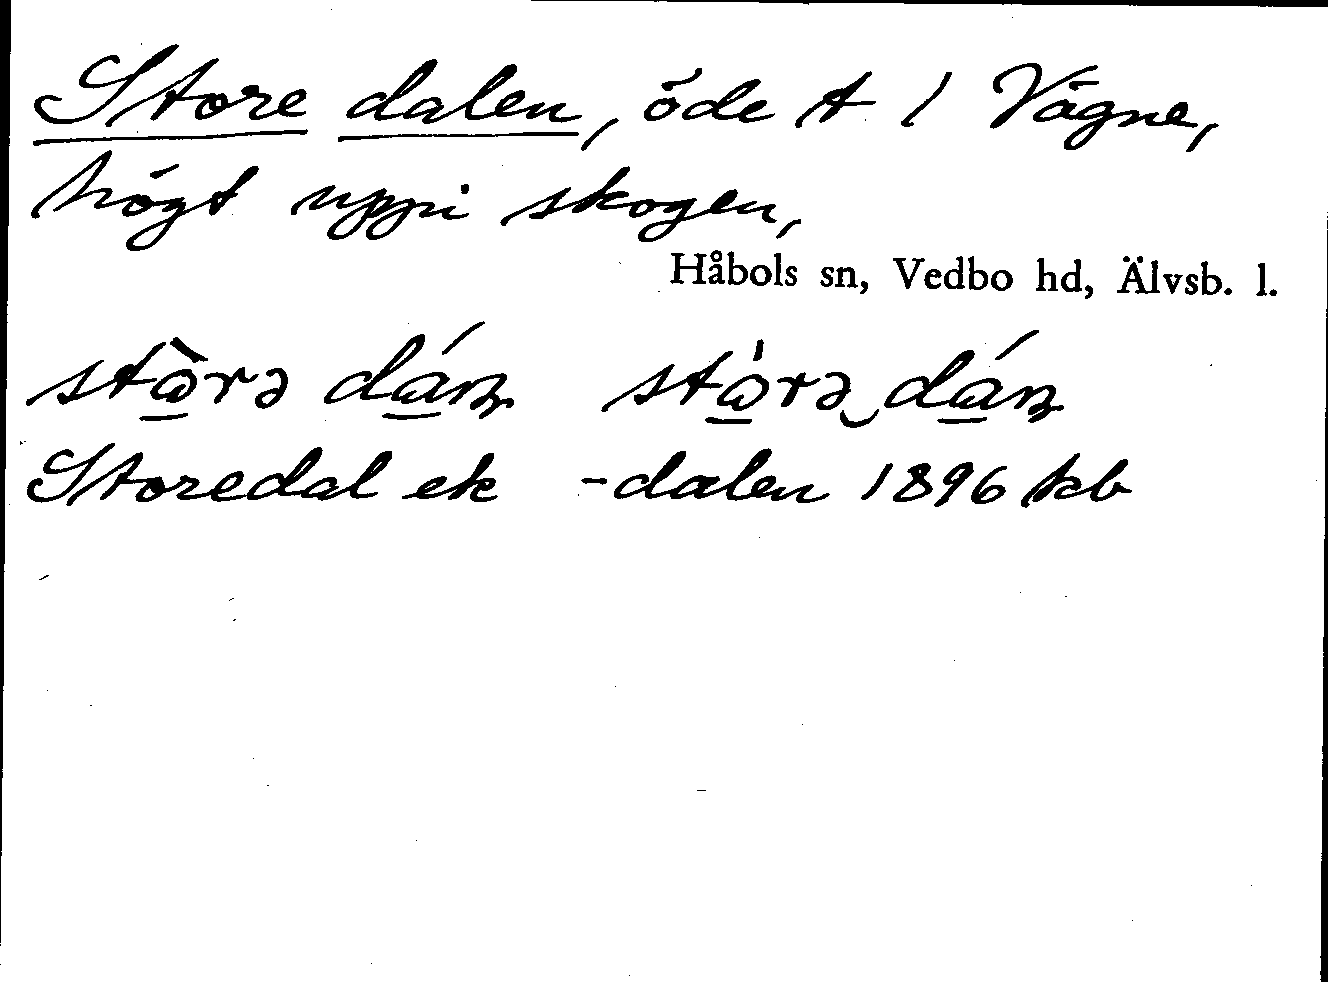 Store dalen, öde t / Vågne,
högt uppi skogen,
Håbols sn, Vedbo hd, Älvsb. l.
Storedal ek -dalen 1896 kb